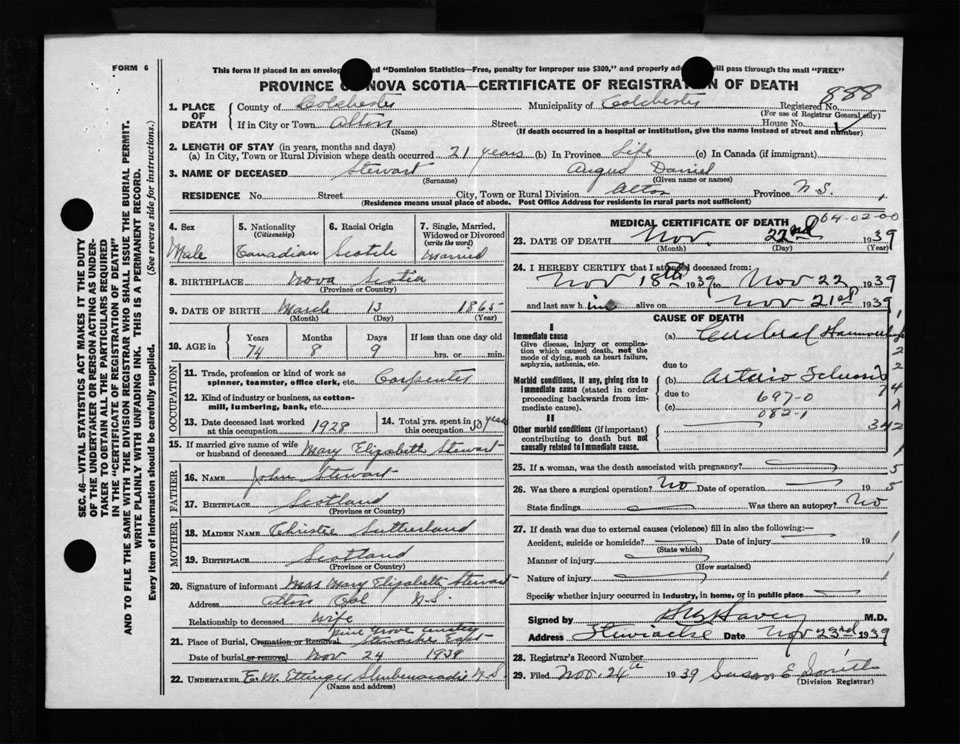 FORM 6
This form if placed in an envelope "Dominion Statistics—Free, penalty for improper use $300," and properly will pass through the mail "FREE"
PROVINCE OF NOVA SCOTIA—CERTIFICATE OF REGISTRATION OF DEATH
888
1. PLACE OF DEATH
County of Colchester Municipality of Colchester Registered No.
(For use of Registrar General only)
If in City or Town Alton Street House No.
(Name) (If death occurred in a hospital or institution, give the name instead of street and number)
2. LENGTH OF STAY (in years, months and days)
(a) In City, Town or Rural Division where death occurred 21 years (b) In Province Life (c) In Canada (if immigrant)
3. NAME OF DECEASED Stewart Angus Daniel
(Surname) (Given name or names)
RESIDENCE No. Street City, Town or Rural Division Alton Province N.S.
(Residence means usual place of abode. Post Office Address for residents in rural parts not sufficient)
4. Sex Male
5. Nationality (Citizenship) Canadian
6. Racial Origin Scotch
7. Single, Married, Widowed or Divorced (write the word) Married
8. BIRTHPLACE Nova Scotia
(Province or Country)
9. DATE OF BIRTH March 13 1865
(Month) (Day) (Year)
10. AGE in Years Months Days If less than one day old
74 8 9 hrs. or min.
OCCUPATION
11. Trade, profession or kind of work as spinner, teamster, office clerk, etc. Carpenter
12. Kind of industry or business, as cotton-mill, lumbering, bank, etc.
13. Date deceased last worked at this occupation 1928
14. Total yrs. spent in this occupation 50 years
15. If married give name of wife or husband of deceased Mary Elizabeth Stewart
FATHER
16. NAME John Stewart
17. BIRTHPLACE Scotland
(Province or Country)
MOTHER
18. MAIDEN NAME Christie Sutherland
19. BIRTHPLACE Scotland
(Province or Country)
20. Signature of informant Mrs Mary Elizabeth Stewart
Address Alton Col N.S.
Relationship to deceased Wife
21. Place of Burial, Cremation or Removal Pine Grove Cemetery
Date of burial or removal Nov 24 1939
22. UNDERTAKER E. M. Ettinger Shubenacadie N.S.
(Name and address)
MEDICAL CERTIFICATE OF DEATH
64-02-00
23. DATE OF DEATH Nov. 22nd 1939
(Month) (Day) (Year)
24. I HEREBY CERTIFY that I attended deceased from:
Nov 18th 1939 to Nov 22 1939
and last saw him alive on Nov 21st 1939
CAUSE OF DEATH
I
Immediate cause
Give disease, injury or complication which caused death, not the mode of dying, such as heart failure, asphyxia, asthenia, etc.
(a) Cerebral Haemorrhage
due to
Morbid conditions, if any, giving rise to immediate cause (stated in order proceeding backwards from immediate cause).
(b) Arterio Sclerosis
due to 697-0
(c) 082-1
II
Other morbid conditions (if important) contributing to death but not causally related to immediate cause.
342
25. If a woman, was the death associated with pregnancy?
26. Was there a surgical operation? No Date of operation 19
State findings Was there an autopsy? No
27. If death was due to external causes (violence) fill in also the following:—
Accident, suicide or homicide? Date of injury 19
(State which)
Manner of injury
(How sustained)
Nature of injury
Specify whether injury occurred in industry, in home, or in public place
Signed by M.D.
Address Stewiacke Date Nov 23rd 1939
28. Registrar's Record Number
29. Filed Nov. 24th 1939 Susan E Smith
(Division Registrar)
SEC. 46—VITAL STATISTICS ACT MAKES IT THE DUTY OF THE UNDERTAKER OR PERSON ACTING AS UNDERTAKER TO OBTAIN ALL THE PARTICULARS REQUIRED IN THE "CERTIFICATE OF REGISTRATION OF DEATH" AND TO FILE THE SAME WITH THE DIVISION REGISTRAR WHO SHALL ISSUE THE BURIAL PERMIT. WRITE PLAINLY WITH UNFADING INK. THIS IS A PERMANENT RECORD.
Every item of information should be carefully supplied. (See reverse side for instructions.)